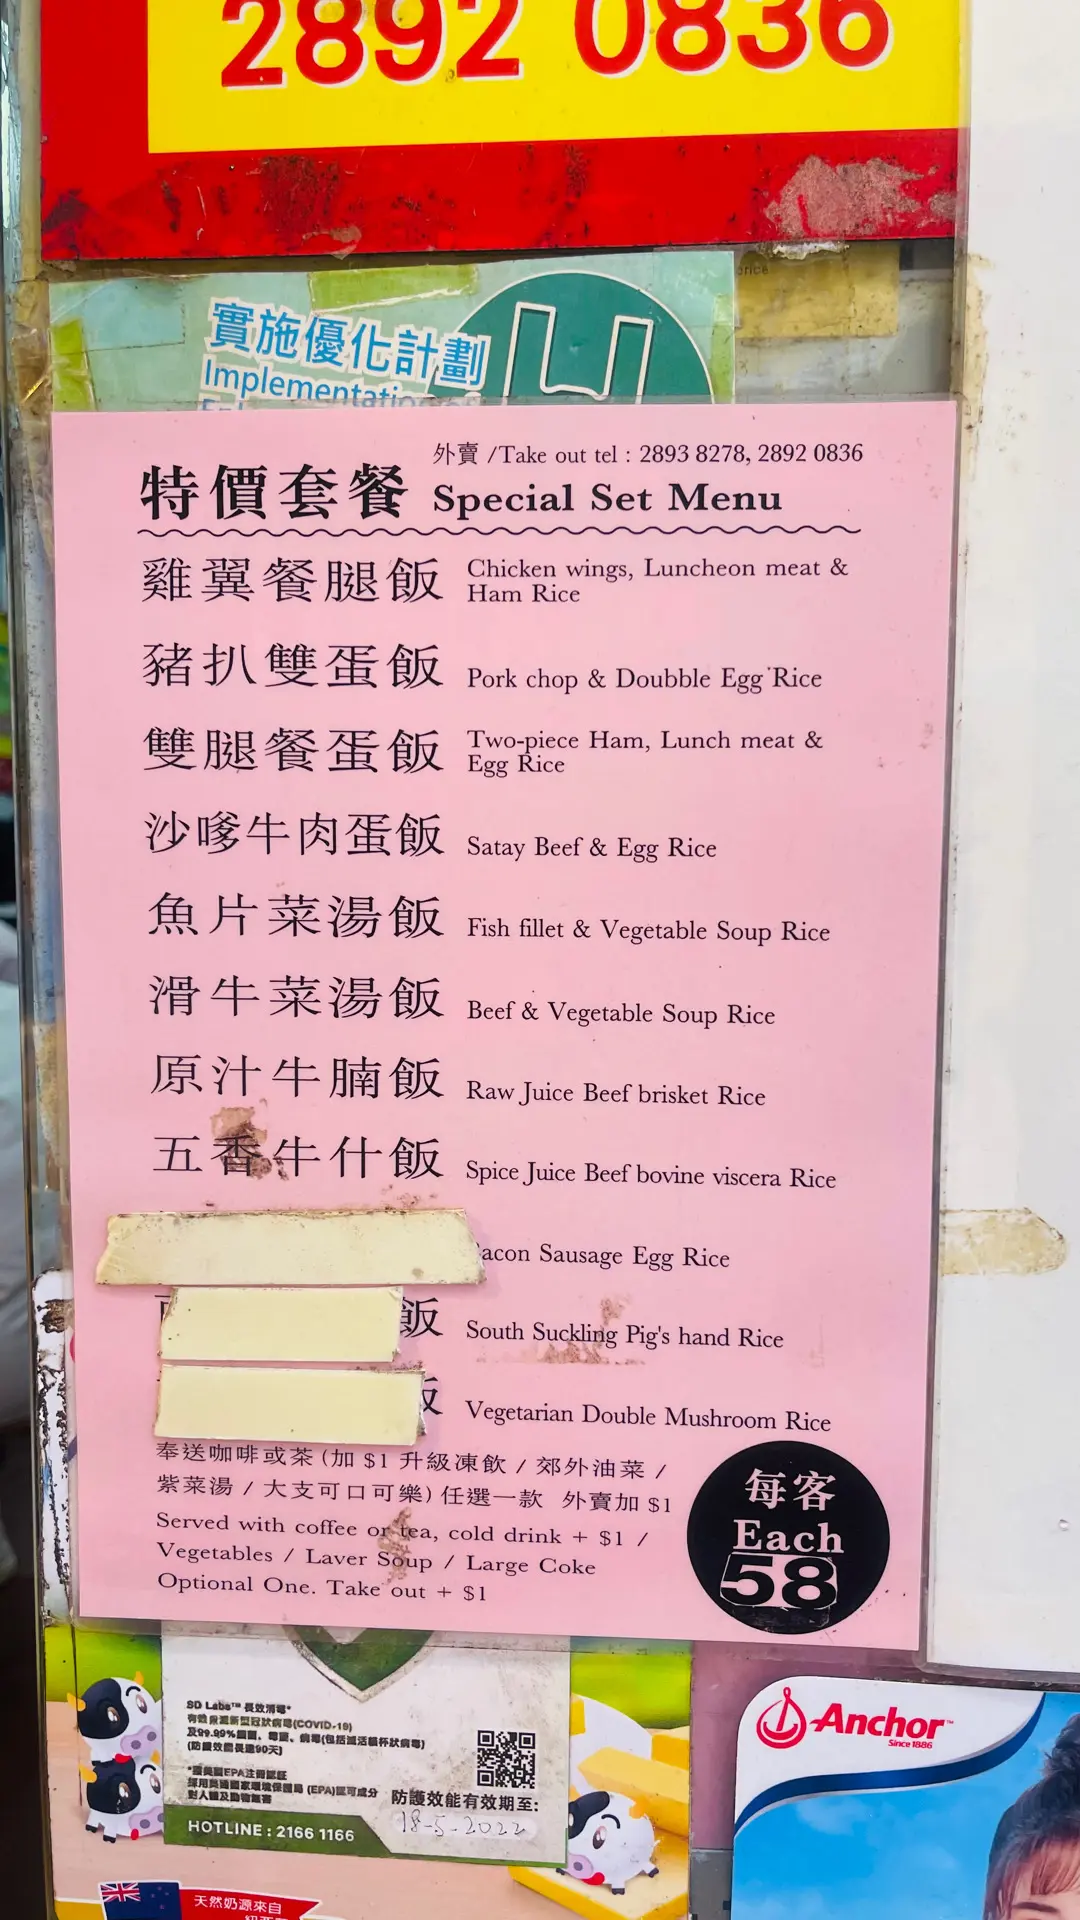 2892 0836
rice
實施優化計劃
Implementation
外賣 /Take out tel : 2893 8278, 2892 0836
特價套餐 Special Set Menu
雞翼餐腿飯 Chicken wings, Luncheon meat &
Ham Rice
豬扒雙蛋飯 Pork chop & Doubble Egg Rice
雙腿餐蛋飯 Two-piece Ham, Lunch meat &
Egg Rice
沙嗲牛肉蛋飯 Satay Beef & Egg Rice
魚片菜湯飯 Fish fillet & Vegetable Soup Rice
滑牛菜湯飯 Beef & Vegetable Soup Rice
原汁牛腩飯 Raw Juice Beef brisket Rice
五香牛什飯 Spice Juice Beef bovine viscera Rice
Bacon Sausage Egg Rice
飯 South Suckling Pig's hand Rice
飯 Vegetarian Double Mushroom Rice
奉送咖啡或茶(加 $1 升級凍飲 / 郊外油菜 /
紫菜湯 / 大支可口可樂) 任選一款 外賣加 $1
Served with coffee or tea, cold drink + $1 /
Vegetables / Laver Soup / Large Coke
Optional One. Take out + $1
每客
Each
58
SD Labs™ 長效消毒*
有效殺滅新型冠狀病毒(COVID-19)
及99.99%細菌、霉菌、病毒(包括滅活貓杯狀病毒)
(防護效能長達90天)
*獲美國EPA注冊認証
採用美國國家環境保護局 (EPA)認可成分
對人體及動物無害
防護效能有效期至:
18-5-2022
HOTLINE : 2166 1166
天然奶源來自
Anchor™
Since 1886